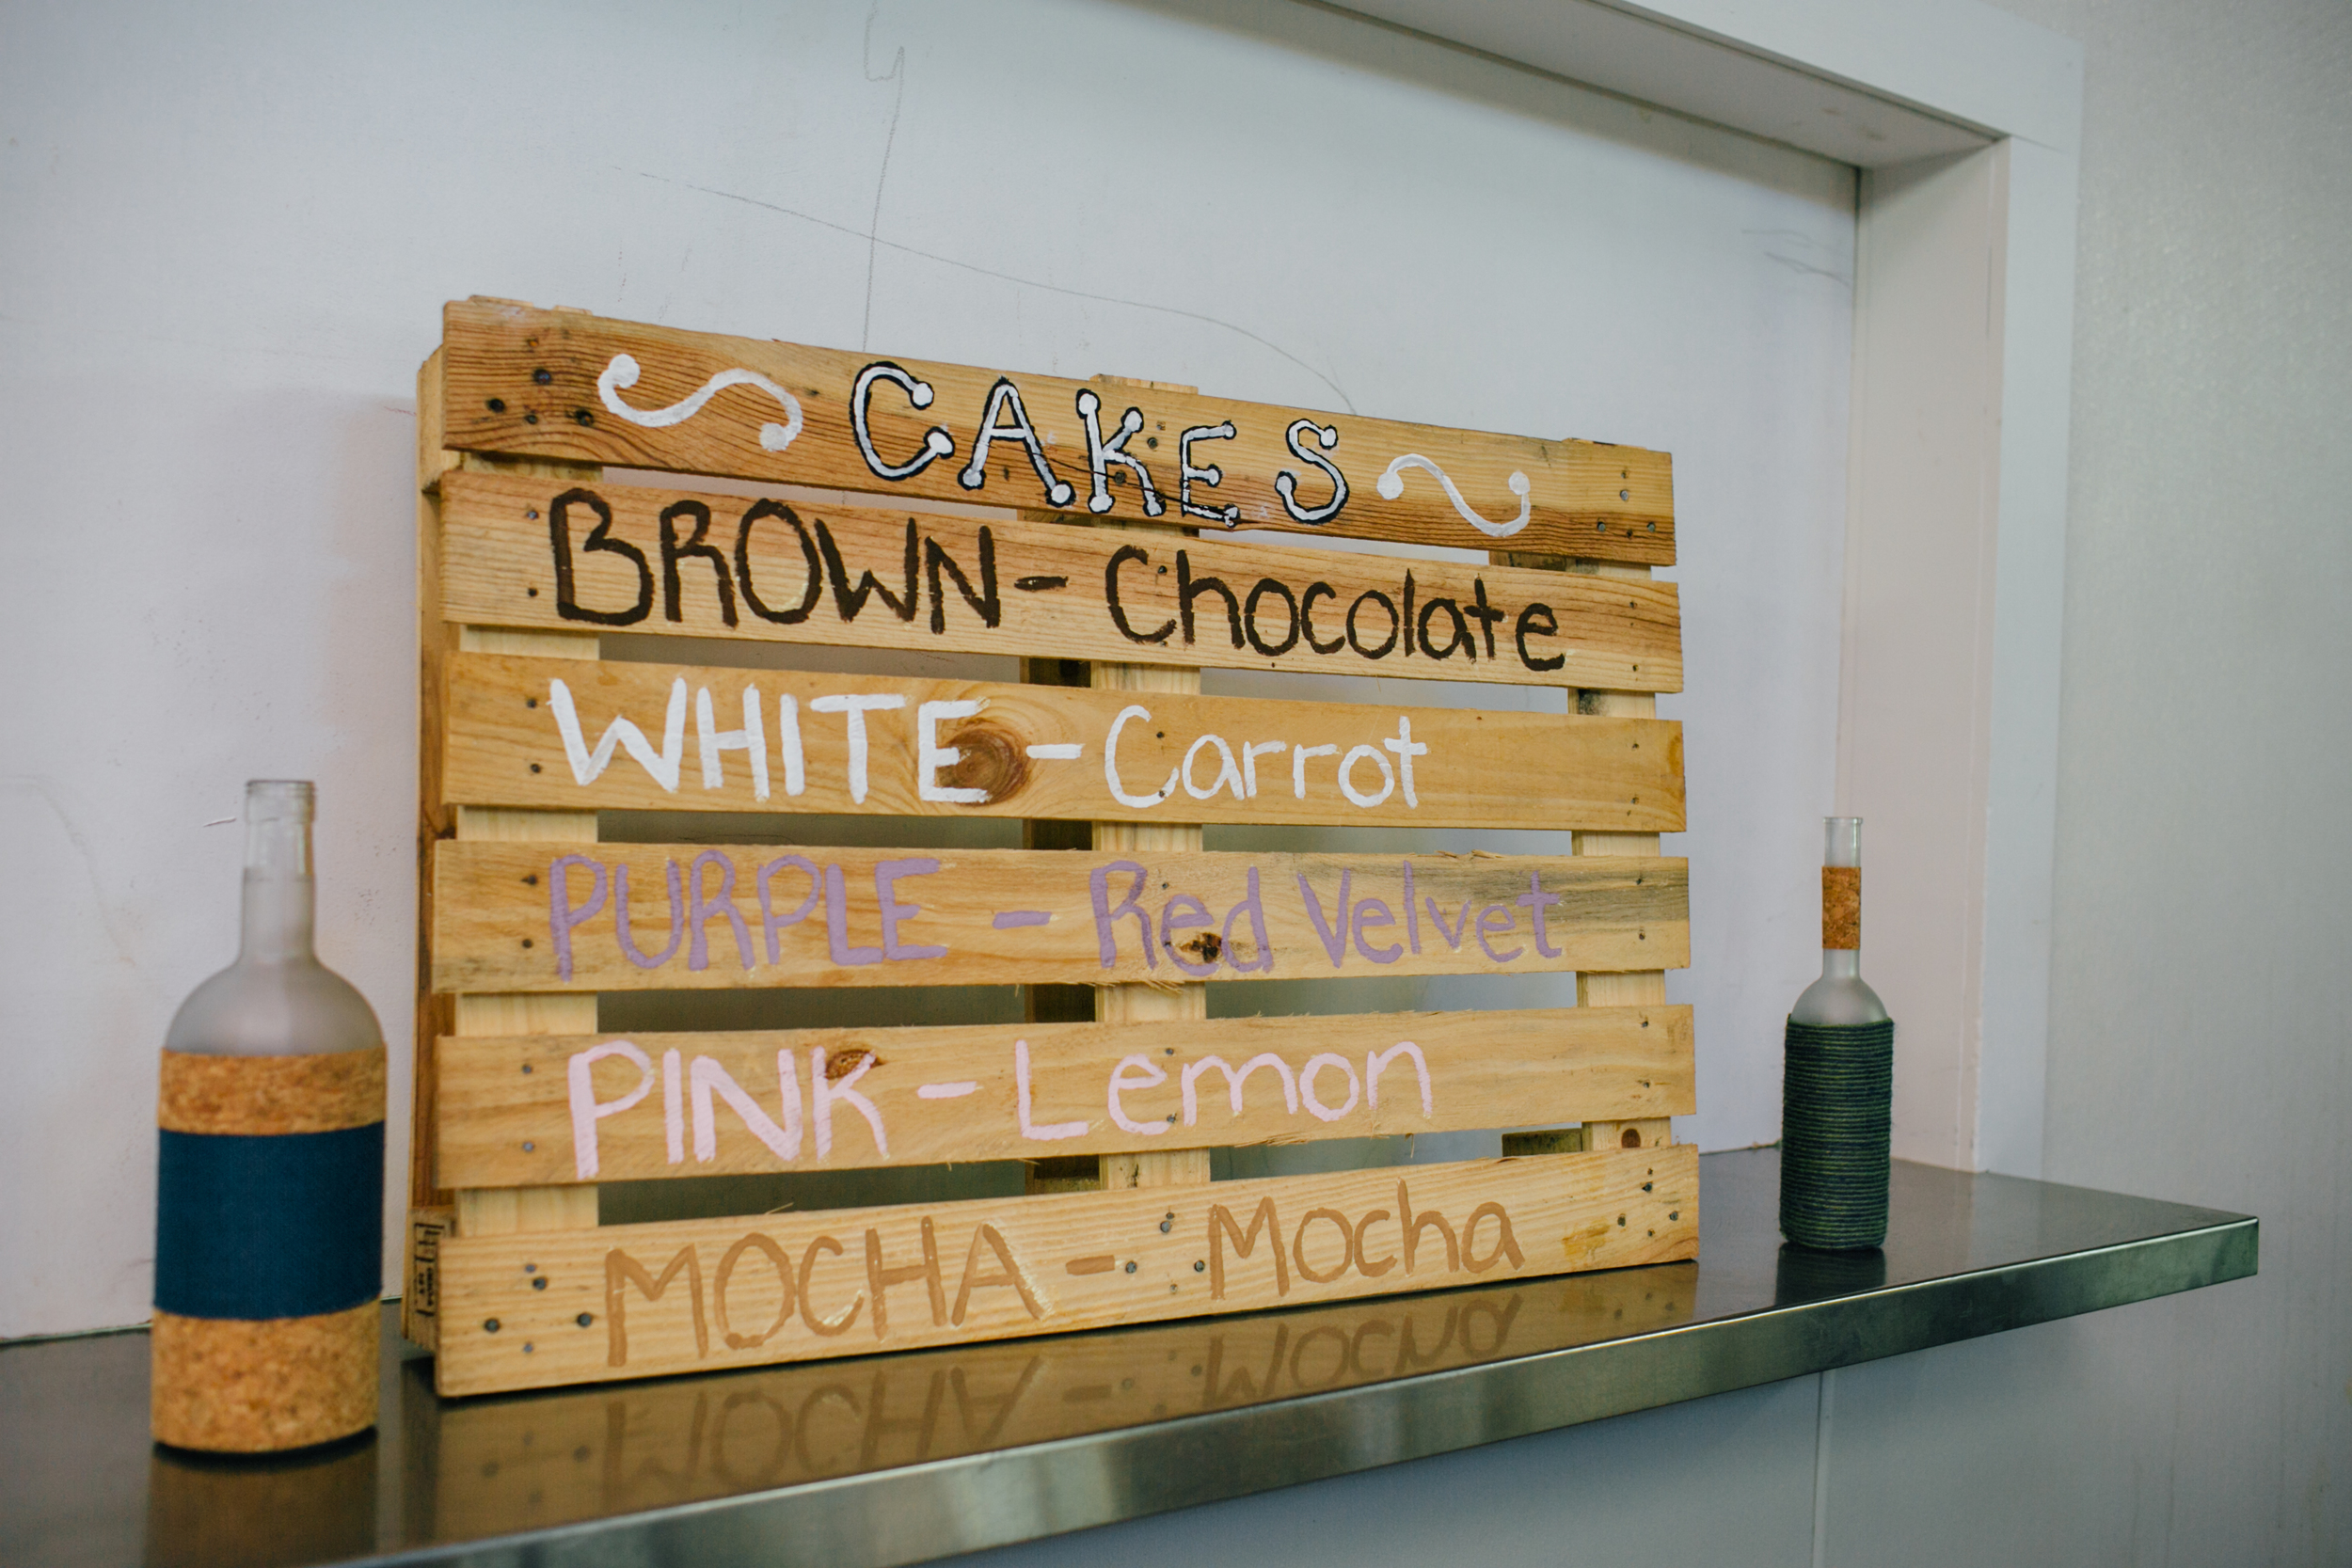 CAKES
BROWN - Chocolate
WHITE - Carrot
PURPLE - Red Velvet
PINK - Lemon
MOCHA - Mocha